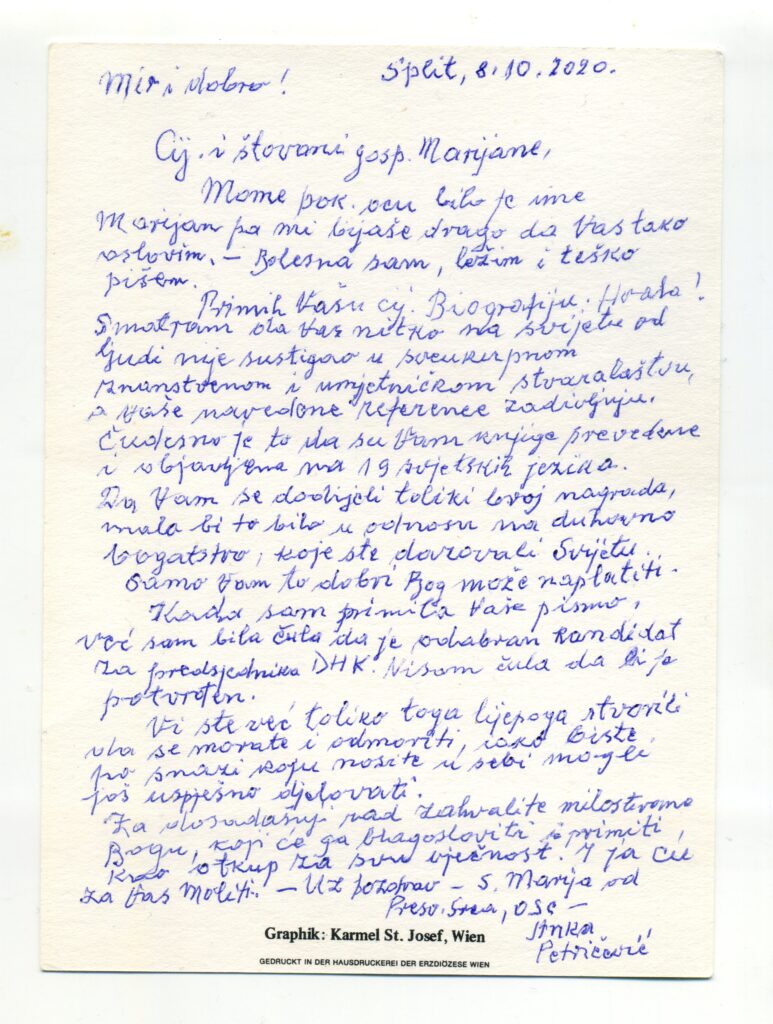 Mir i dobro! Split, 8.10.2020.
Cij. i štovani gosp. Marijane,
Mome pok. ocu bilo je ime
Marijan pa mi bijaše drago da Vas tako
oslovim. – Bolesna sam, ležim i teško
pišem.
Primih Vašu cij. Biografiju. Hvala!
Smatram da Vas nitko na svijetu od
ljudi nije sustigao u sveukupnom
znanstvenom i umjetničkom stvaralaštvu,
a Vaše navedene reference zadivljuju.
Čudesno je to da su Vam knjige prevedene
i objavljene na 19 svjetskih jezika.
Da Vam se dodijeli toliki broj nagrada,
malo bi to bilo u odnosu na duhovno
bogatstvo, koje ste darovali Svijetu.
Samo Vam to dobri Bog može naplatiti.
Kada sam primila Vaše pismo,
već sam bila čula da je odabran kandidat
za predsjednika DHK. Nisam čula da li je
potvrđen.
Vi ste već toliko toga lijepoga stvorili
da se morate i odmoriti, iako biste
po snazi koju nosite u sebi mogli
još uspješno djelovati.
Za dosadašnji rad zahvalite milostivome
Bogu, koji će ga blagosloviti i primiti
kao otkup za svu vječnost. I ja ću
za Vas moliti. – Uz pozdrav – S. Marija od
Presv. Srca, OSC –
Anka
Petričević
Graphik: Karmel St. Josef, Wien
GEDRUCKT IN DER HAUSDRUCKEREI DER ERZDIÖZESE WIEN